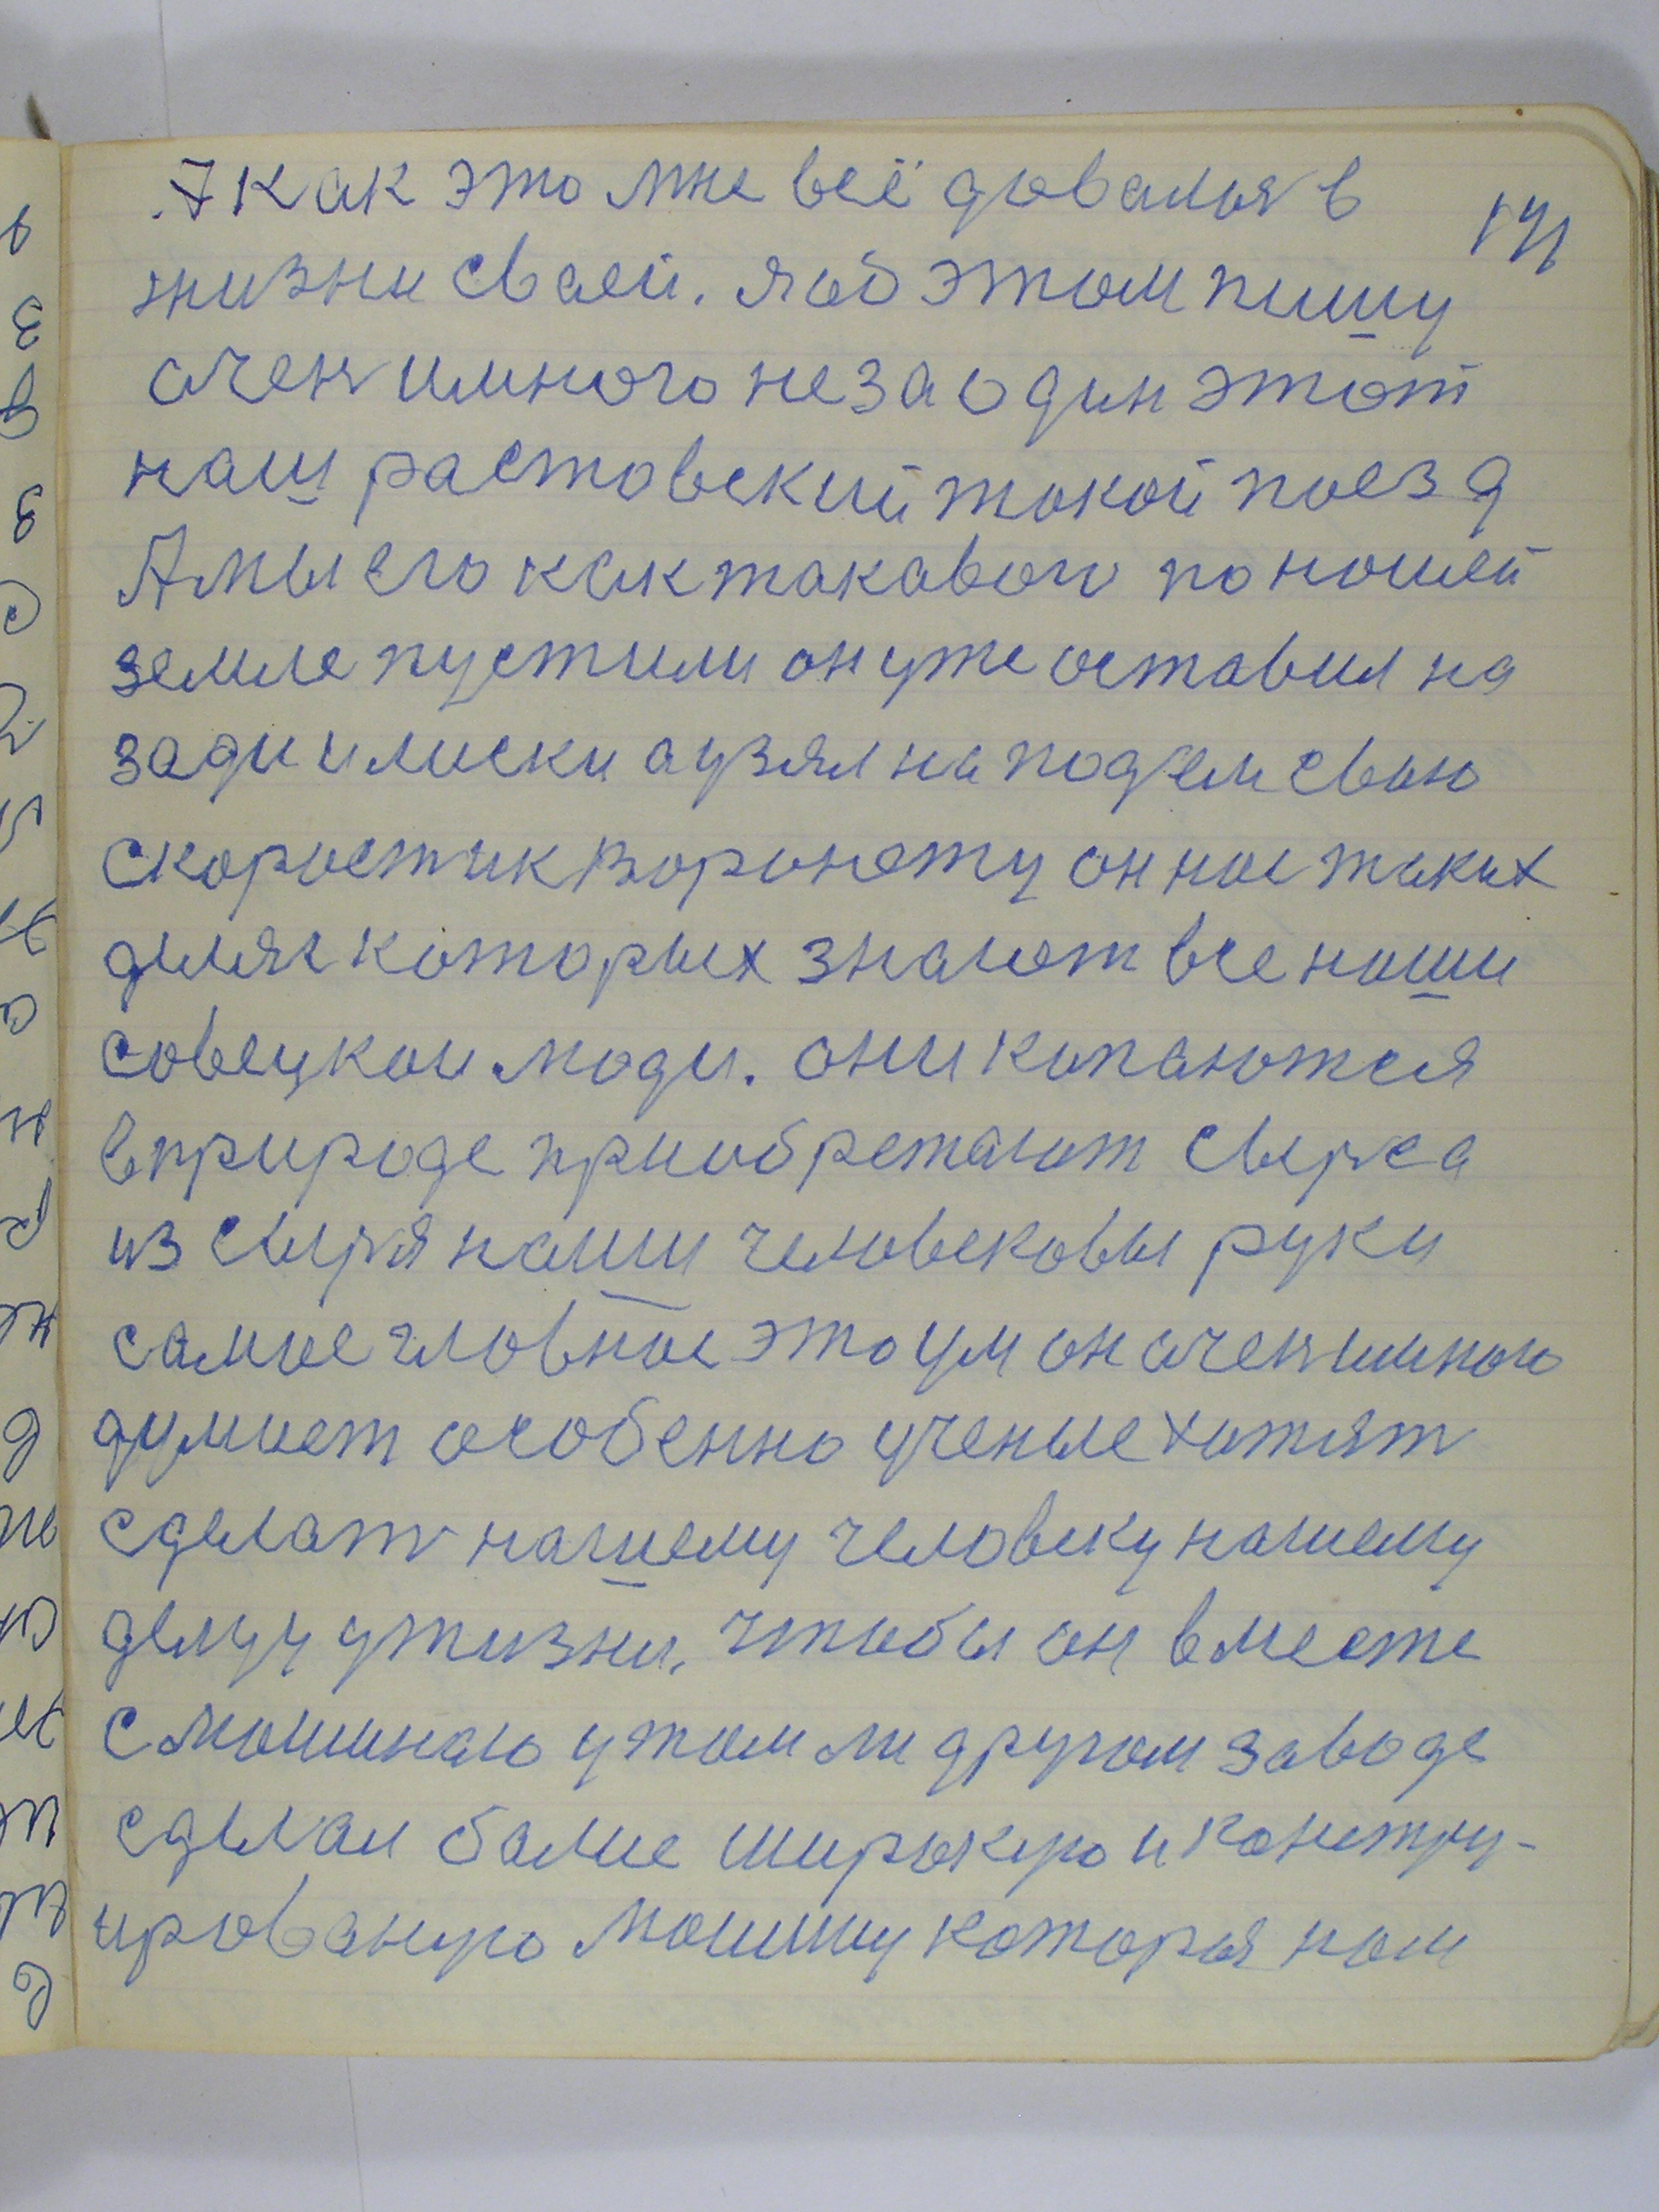 А как это мне всё довалося в
жизни сваей. я об этом пишу
очень и много не за один этот
наш растовский токой поезд
А мы его как такавого по ношей
земле пустили он уже оставил на
зади и лиски а узял на подъем свою
скорость к воронежу он нас таких
деляг которых знают все наши
совецкои люди. они копаются
в природе приобретают сырья
из сырья наши человековы руки
самое гловное это ум он очень много
думает особенно ученые хотят
сделать нашему человеку нашему
делу у жизни, чтобы он вместе
с мошиною у том ли другом заводе
сделал более широкую и констру-
ированую мошину которая нам